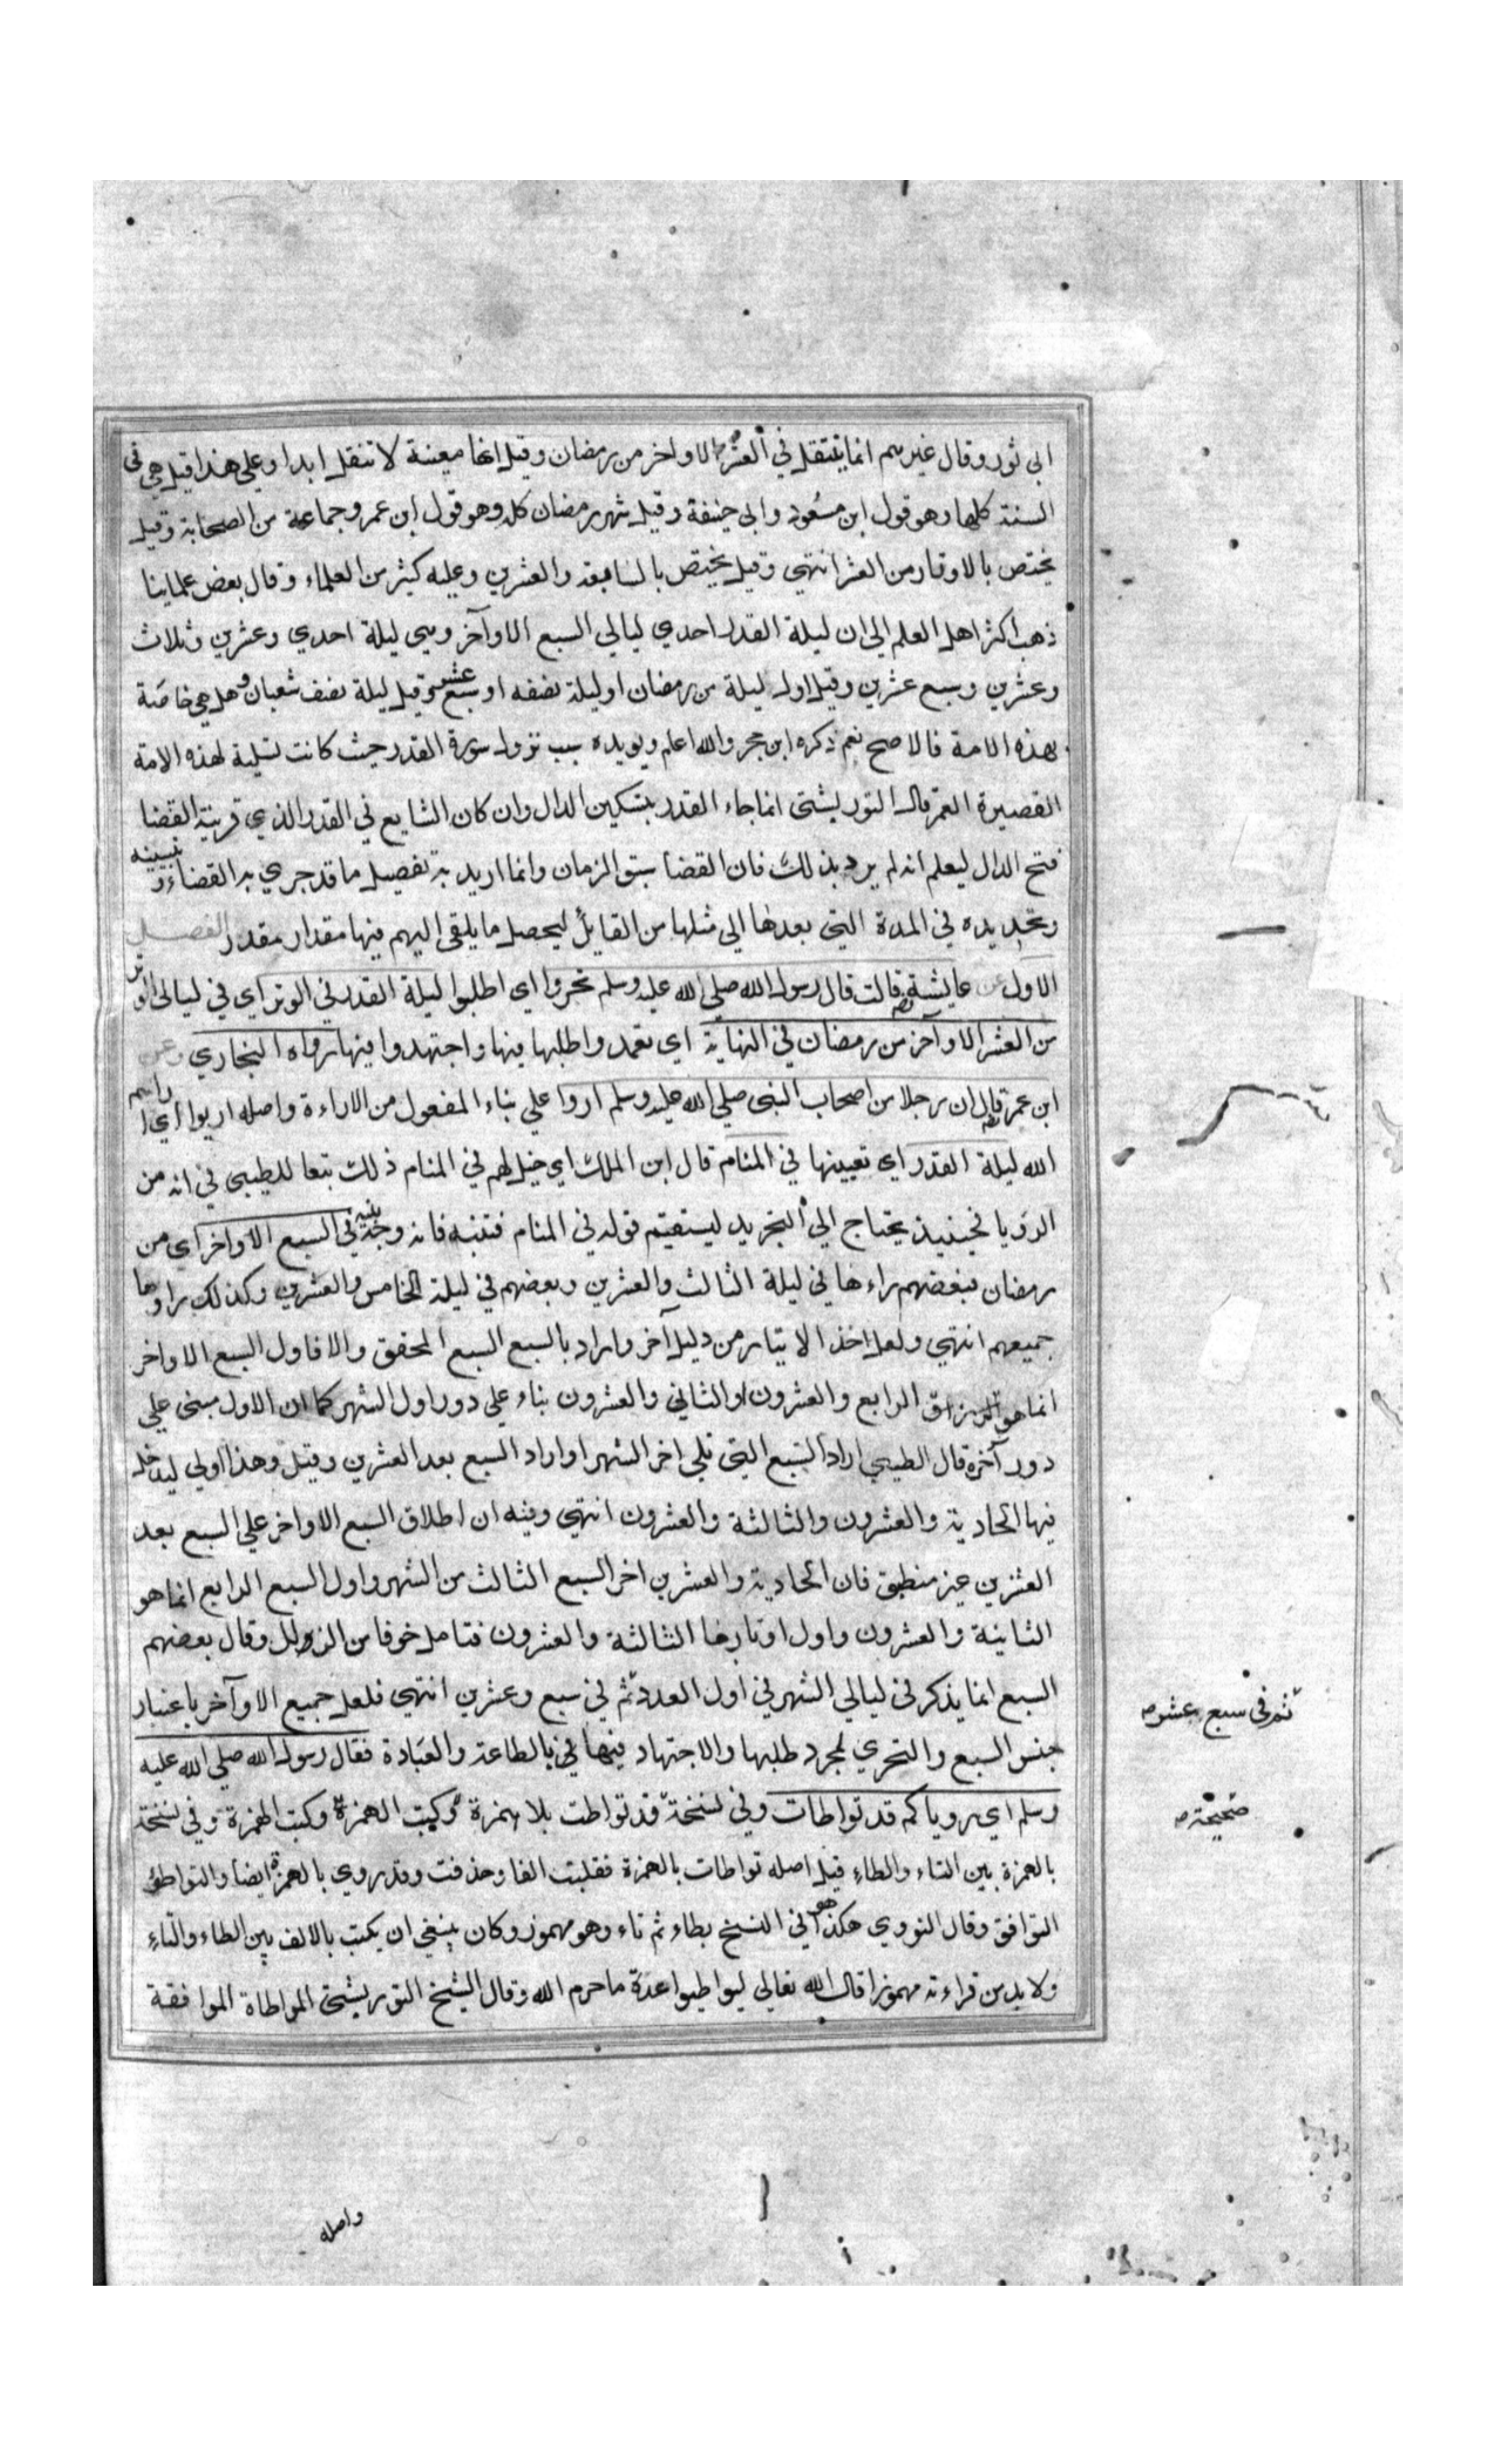 ابي ثور وقال غيرهم انما ينتقل في العشر الاواخر من رمضان وقيل انها معينة لا تنتقل ابدا وعلي هذا قيل هي في
السنة كلها وهو قول ابن مسعود وابي حنيفة وقيل شهر رمضان كله وهو قول ابن عمر وجماعة من الصحابة وقيل
يختص بالاوتار من العشر انتهي وقيل يختص بالسابعة والعشرين وعليه كثير من العلماء وقال بعض علماينا
ذهب اكثر اهل العلم الي ان ليلة القدر احدي ليالي السبع الاوآخر وهي ليلة احدي وعشرين وثلاث
وعشرين وسبع عشرين وقيل اول ليلة من رمضان او ليلة نصفه او سبع عشر وقيل ليلة نصف شعبان وهل هي خاصة
بهذه الامة فالاصح نعم ذكره ابن حجر والله اعلم ويويده سبب نزول سورة القدر حيث كانت تسلية لهذه الامة
القصيرة العمر قال التوربشتي انما جاء القدر بتسكين الدال وان كان الشايع في القدر الذي قرينة القضا
فتح الدال ليعلم انه لم يرد بذلك فان القضا سبق الزمان وانما اريد به تفصيل ما قد جري به القضاء وتبيينه
وتحديده في المدة التي بعدها الي مثلها من القابل ليحصل ما يلقي اليهم فيها مقدار مقدر الفصل
الاول عن عايشة رضي قالت قال رسول الله صلي الله عليه وسلم تحروا اي اطلبوا ليلة القدر في الوتر اي في ليالي الوتر
من العشر الاوآخر من رمضان في النهاية اي تعمدوا طلبها فيها واجتهدوا فيها رواه البخاري وعن
ابن عمر رضي قال ان رجلا من اصحاب النبي صلي الله عليه وسلم اروا علي بناء المفعول من الاراءة واصله اريوا اي اراهم
الله ليلة القدر اي تعيينها في المنام قال ابن الملك اي خيل لهم في المنام ذلك تبعا للطيبي في انه من
الرؤيا فحينيذ يحتاج الي التجريد ليستقيم قوله في المنام فتنبه فانه وجه نبيه في السبع الاواخر اي من
رمضان فبعضهم راءها في ليلة الثالث والعشرين وبعضهم في ليلة الخامس والعشرين وكذلك راوها
جميعهم انتهي ولعل اخذ الايتار من دليل آخر واراد بالسبع السبع المحقق والا فاول السبع الاواخر
انما هو الرابع والعشرون او الثاني والعشرون بناء علي دور اول الشهر كما ان الاول مبني علي
دور آخره قال الطيبي اراد السبع التي تلي اخر الشهر او اراد السبع بعد العشرين وقيل وهذا اولي ليدخل
فيها الحادية والعشرون والثالثة والعشرون انتهي وفيه ان اطلاق السبع الاواخر علي السبع بعد
العشرين غير منطبق فان الحادية والعشرين اخر السبع الثالث من الشهر واول السبع الرابع انما هو
الثانية والعشرون واول اوتارها الثالثة والعشرون فتامل خوفا من الزلل وقال بعضهم
السبع انما يذكر في ليالي الشهر في اول العدد ثم في سبع وعشرين انتهي فلعل جميع الاوآخر باعتبار
ثم في سبع عشر صح
جنس السبع والتحري لمجرد طلبها والاجتهاد فيها بالطاعة والعبادة فقال رسول الله صلي الله عليه
وسلم اي روياكم قد تواطات وفي نسخة قد تواطت بلا همزة وكتب الهمزة وفي نسخة
صحيحة صح
بالهمزة بين التاء والطاء قيل اصله تواطات بالهمزة فقلبت الفا وحذفت وقد روي بالهمزة ايضا والتواطؤ
التوافق وقال النووي هكذا هو في النسخ بطاء ثم تاء وهو مهموز وكان ينبغي ان يكتب بالالف بين الطاء والتاء
ولا بد من قراءته مهموزا قال الله تعالي ليواطيوا عدة ما حرم الله وقال الشيخ التوربشتي المواطاة الموافقة
واصله